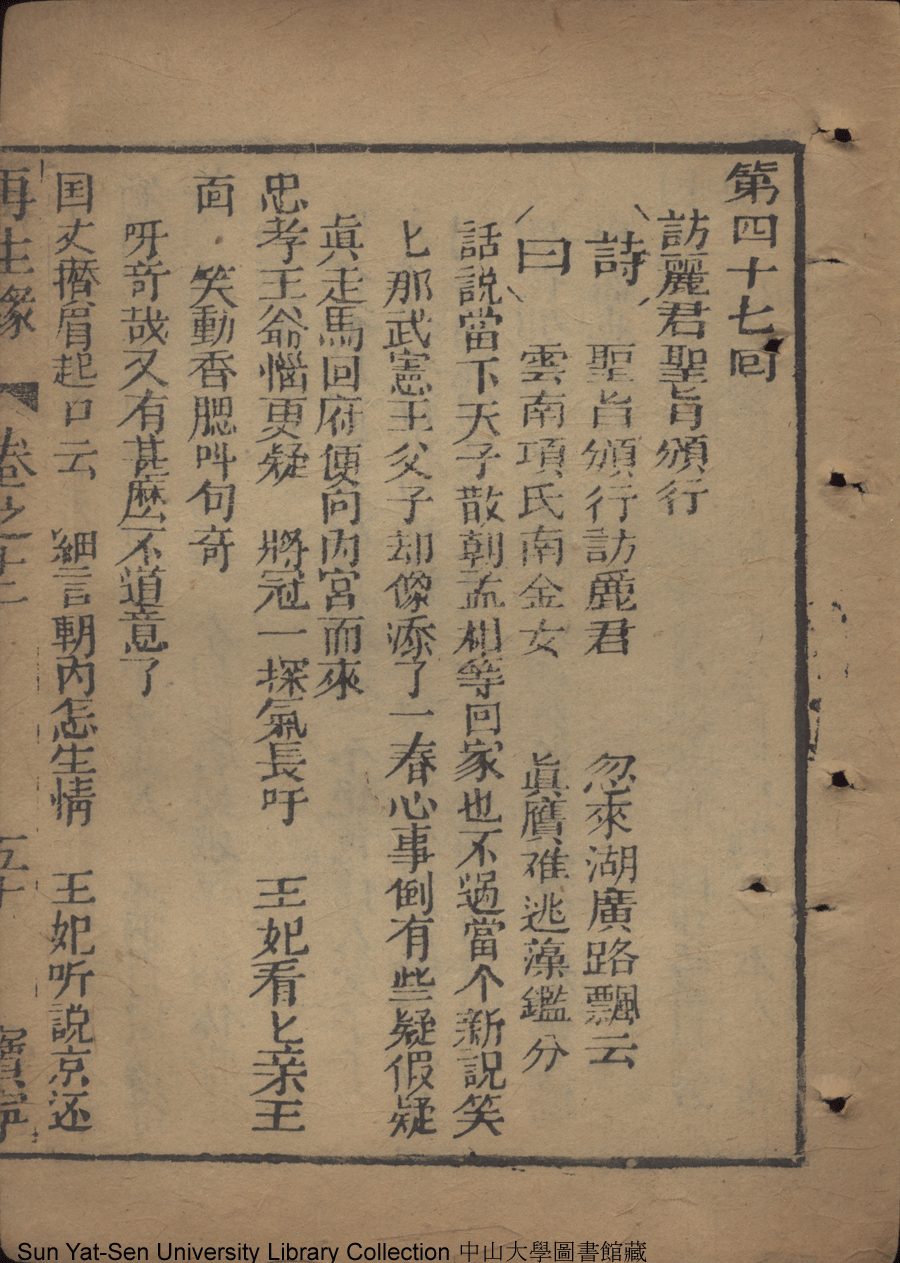 第四十七回
訪麗君聖旨頒行
詩 聖旨頒行訪麗君 忽來湖廣路飄云
曰 雲南項氏南金女 眞贋难逃藻鑑分
話説當下天子散朝孟相等回家也不過當个新説笑
匕那武憲王父子却像添了一春心事倒有些疑假疑
眞走馬回府便向内宮而來
忠孝王爺惱更疑 將冠一探氣長吁 王妃看匕亲王
面 笑動香腮叫句奇
呀竒哉又有甚麽不道意了
国丈摺眉起口云 細言朝内怎生情 王妃听説京还
再生縁 卷之十二 五十 寳寧
Sun Yat-Sen University Library Collection 中山大學圖書館藏